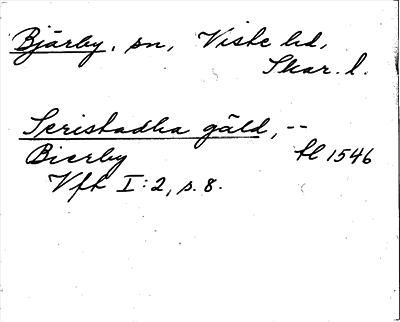 Bjärby, sn, Viste hd,
Skar. l.
Seristadha gäld, --
Bierby fl 1546
Vft I:2, s. 8.